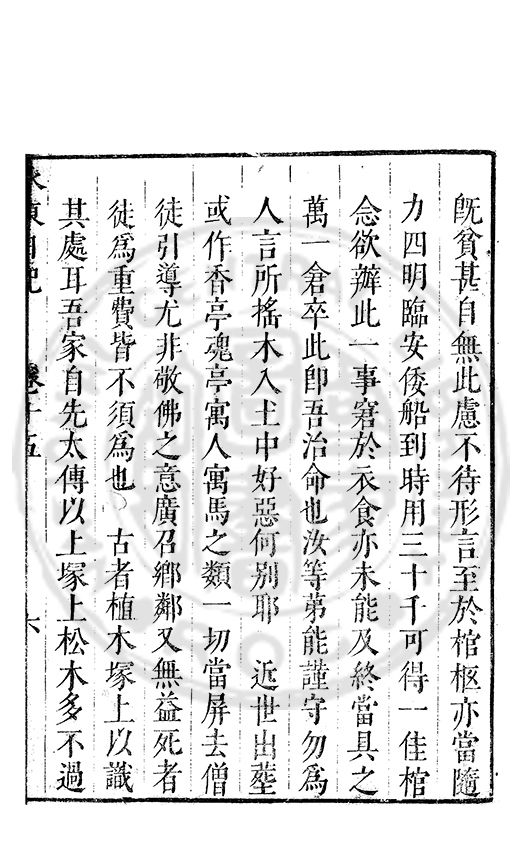 既貧甚自無此慮不待形言至於棺柩亦當隨
力四明臨安倭船到時用三十千可得一佳棺
念欲辦此一事窘於衣食亦未能及終當具之
萬一倉卒此卽吾治命也汝等苐能謹守勿為
人言所搖木入土中好惡何别耶　近世出塟
或作香亭魂亭寓人寓馬之類一切當屏去僧
徒引導尤非敬佛之意廣召鄉鄰又無益死者
徒為重費皆不須為也　古者植木塚上以識
其處耳吾家自先太傅以上塚上松木多不過
卷十五
六